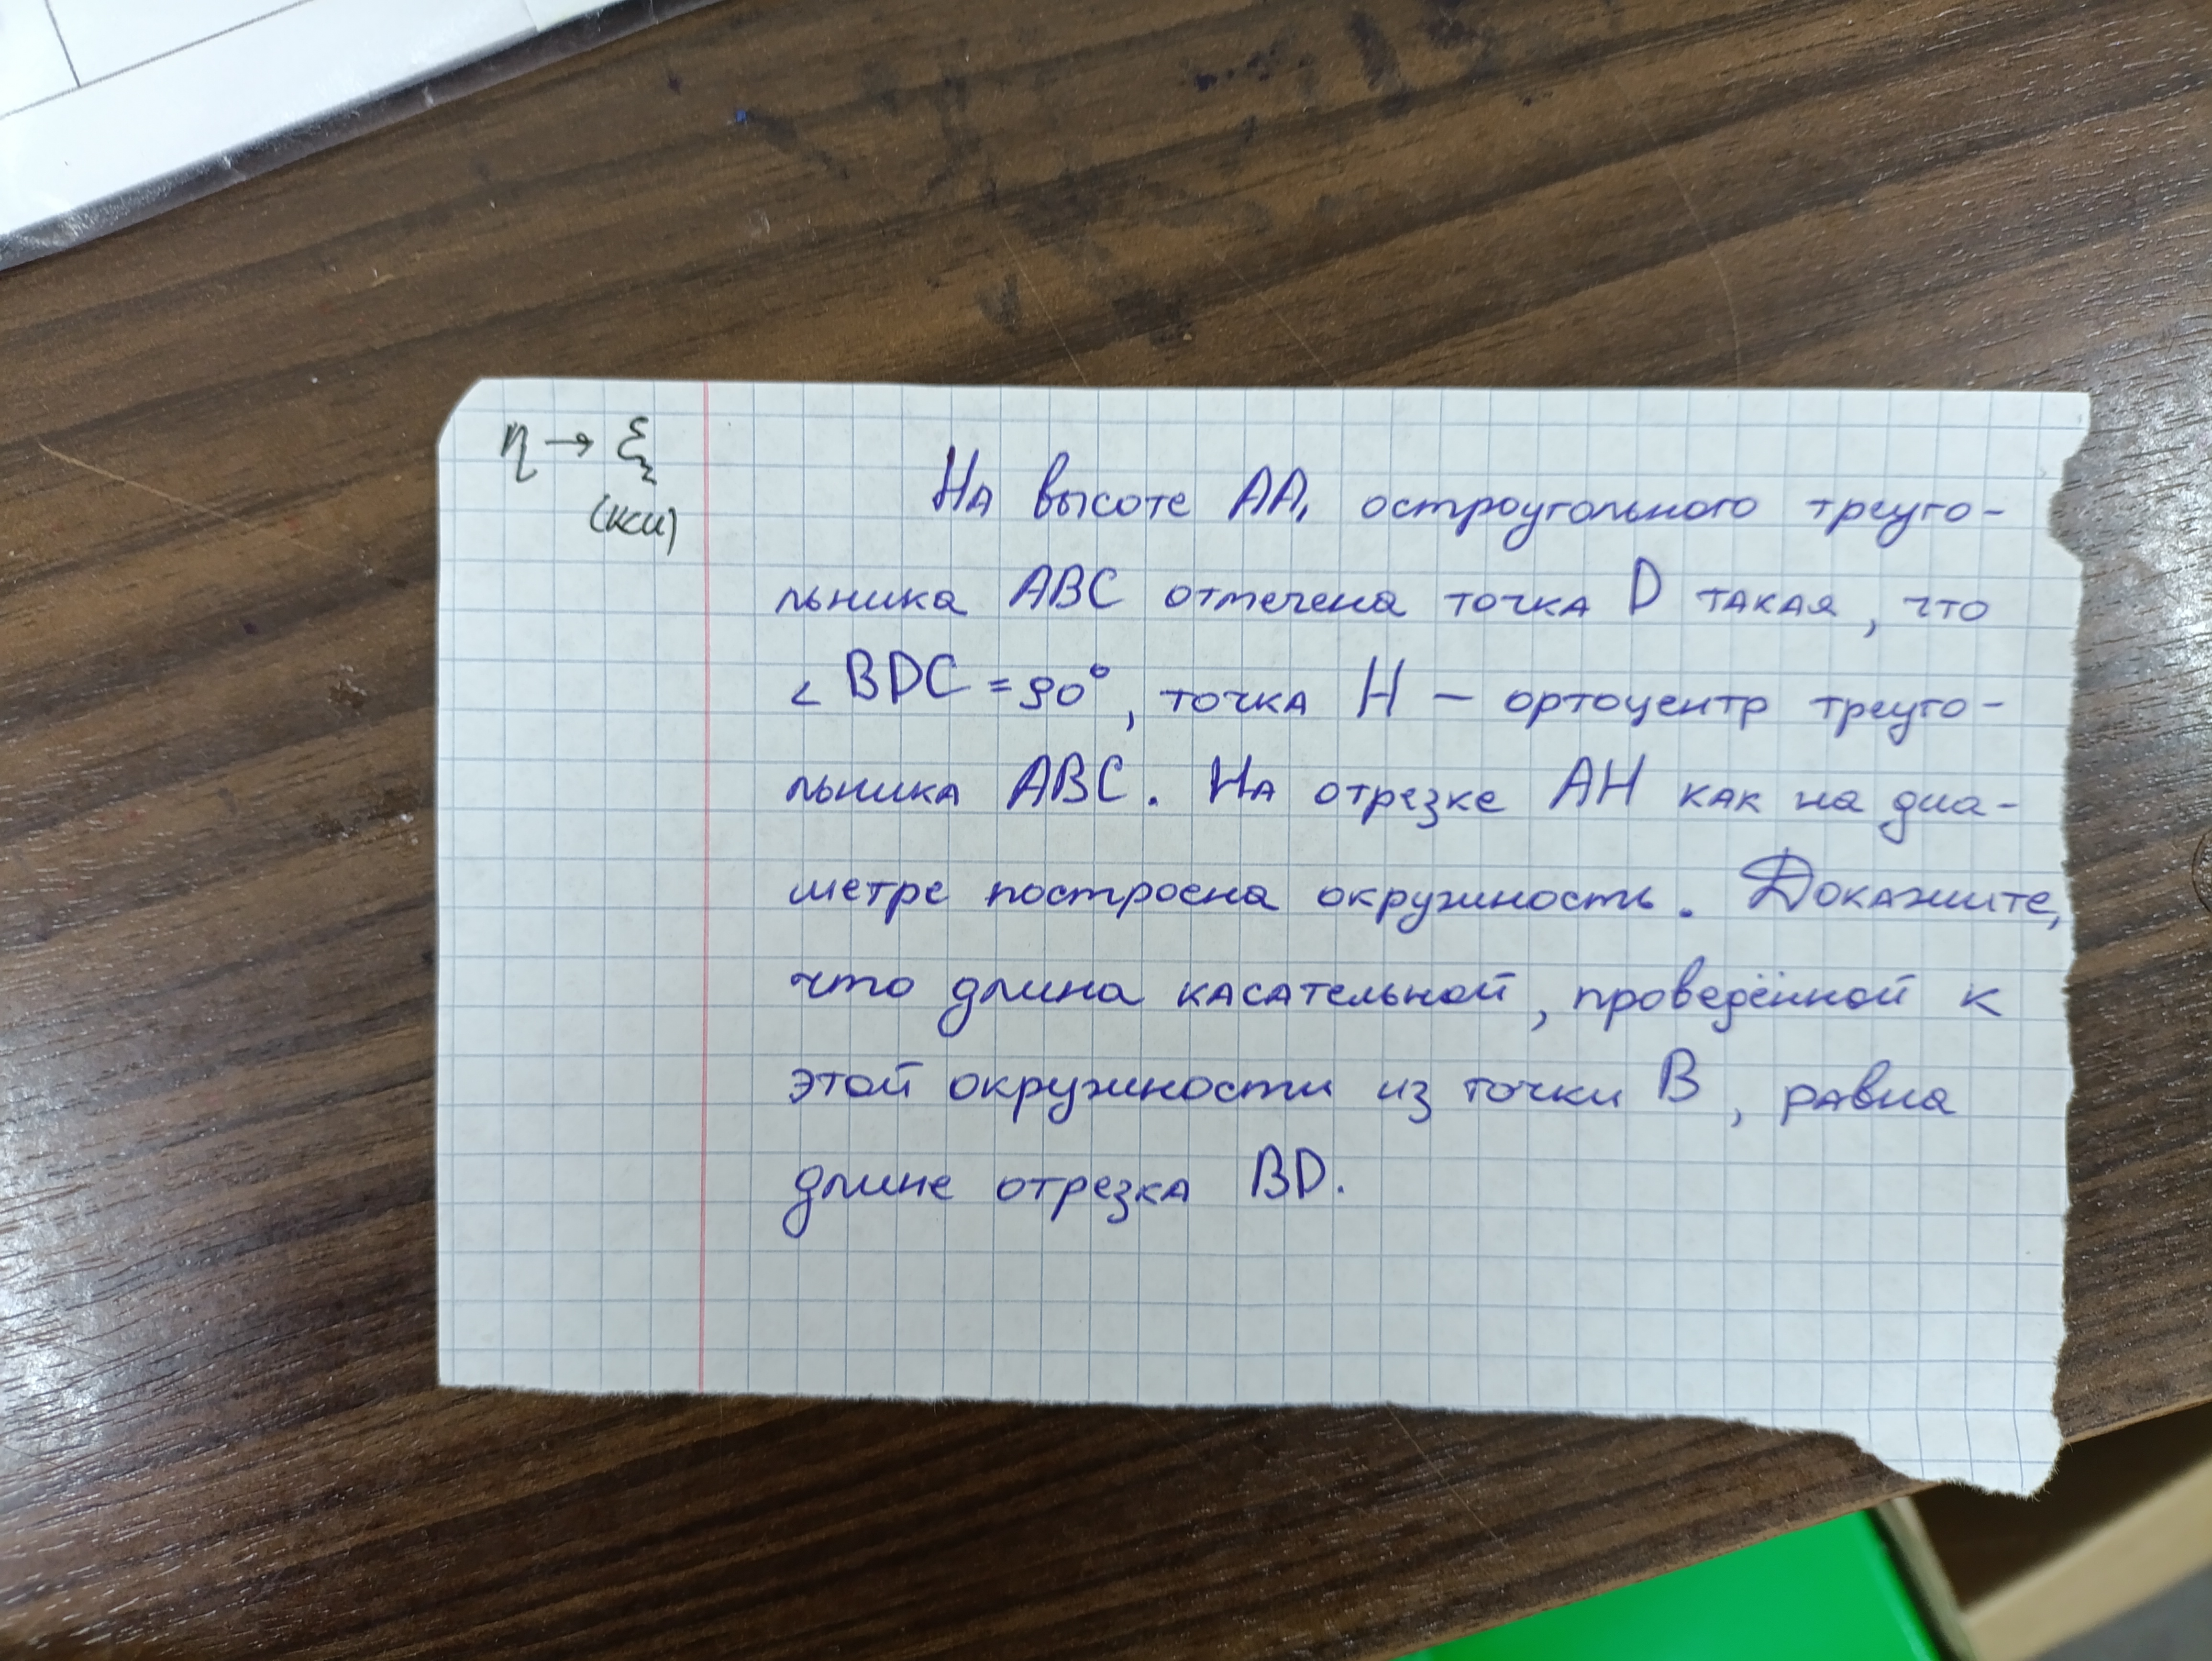 η → ξ
(кси)
На высоте AA₁ остроугольного треуго-
льника ABC отмечена точка D такая, что
∠BDC = 90°, точка H – ортоцентр треуго-
льника ABC. На отрезке AH как на диа-
метре построена окружность. Докажите,
что длина касательной, проведённой к
этой окружности из точки B, равна
длине отрезка BD.